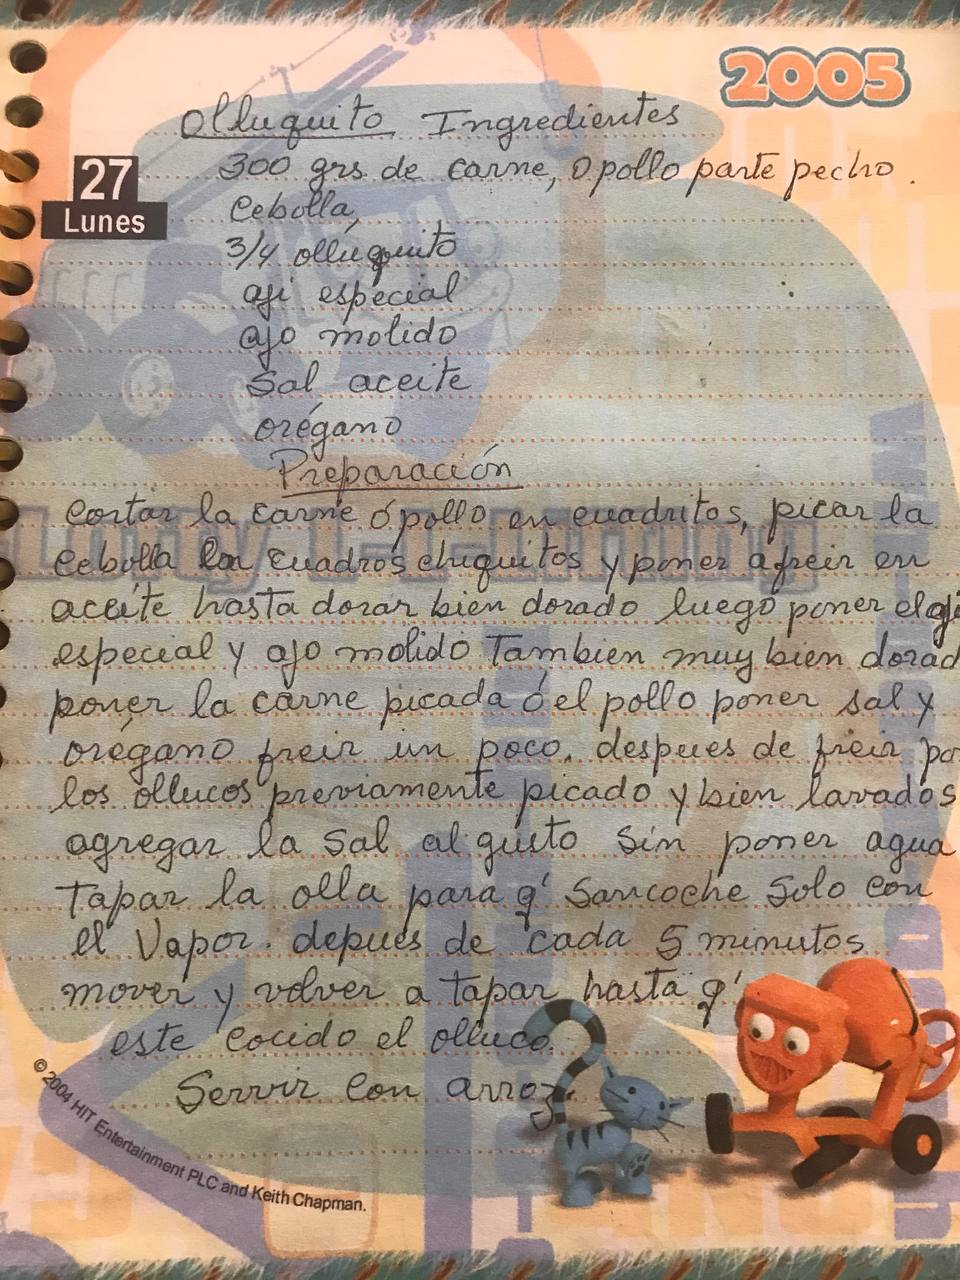 2005
Olluquito Ingredientes
27
Lunes
300 grs de carne, o pollo parte pecho.
Cebolla,
3/4 ollúquito
aji especial
ajo molido
Sal aceite
orégano
Preparación
Cortar la carne ó pollo en cuadritos, picar la
Cebolla en cuadros chiquitos y poner a freir en
aceite hasta dorar bien dorado luego poner el aji
especial y ajo molido Tambien muy bien dorad
poner la carne picada ó el pollo poner sal y
orégano freir un poco. despues de freir po
los ollucos previamente picado y bien lavados
agregar la sal al gusto sin poner agua
Tapar la olla para q' Sancoche Solo con
el Vapor. depues de cada 5 minutos
mover y volver a tapar hasta q'
este cocido el olluco.
Servir con arroz
© 2004 HIT Entertainment PLC and Keith Chapman.